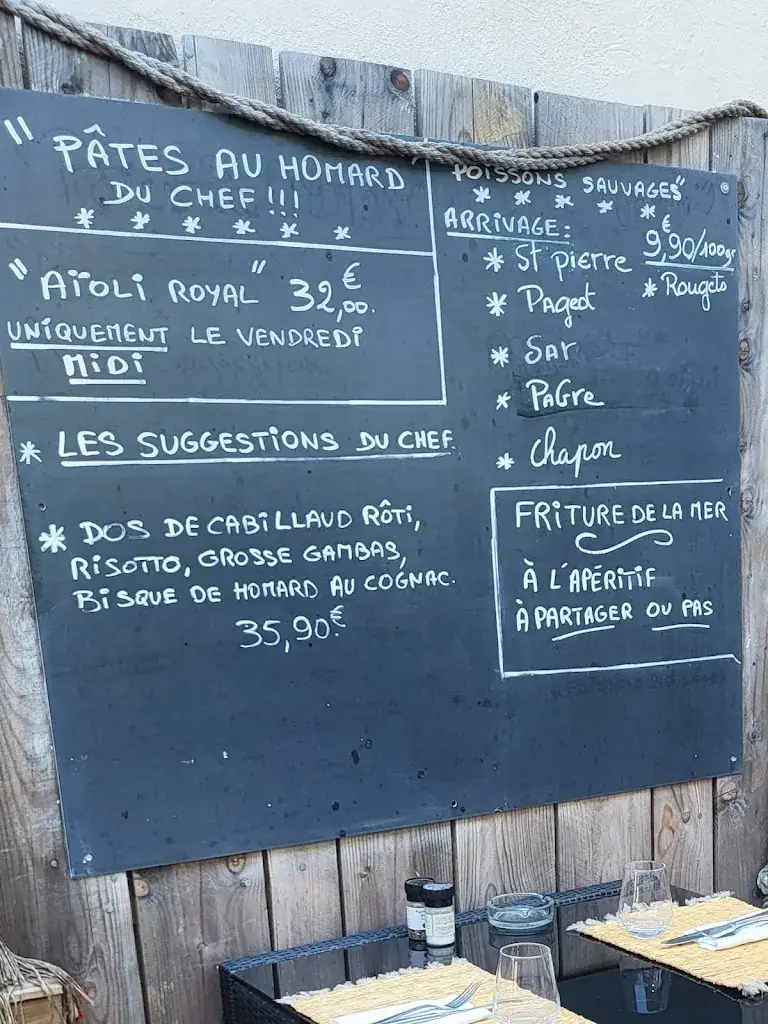 "PÂTES AU HOMARD
DU CHEF !!!
"AÏOLI ROYAL" 32,00€
UNIQUEMENT LE VENDREDI
MIDI
* LES SUGGESTIONS DU CHEF
* DOS DE CABILLAUD RÔTI,
RISOTTO, GROSSE GAMBAS,
BISQUE DE HOMARD AU COGNAC.
35,90€
POISSONS SAUVAGES"
ARRIVAGE:
9,90€/100gr
* St pierre
* Rougets
* Pageot
* Sar
* PaGre
* Chapon
FRITURE DE LA MER
À L'APÉRITIF
À PARTAGER OU PAS